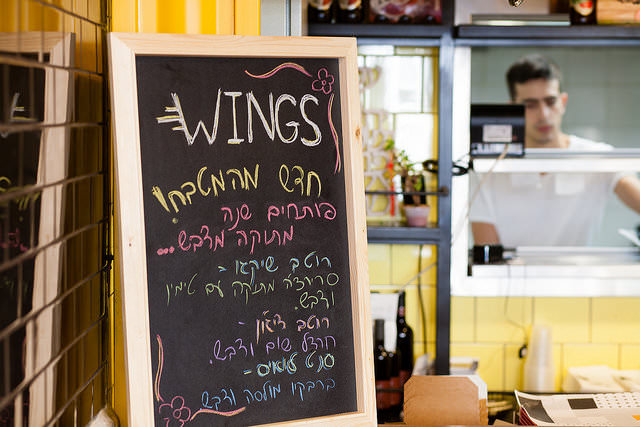 WINGS
חדש מהמטבח!
פותחים שנה
מתוקה מדבש...
רוטב שיקגו -
מתוקה עם טימין
ודבש.
רוטב דיז'ון -
חרדל שום ודבש.
סנט לואיס -
ברבקיו מולסה ודבש